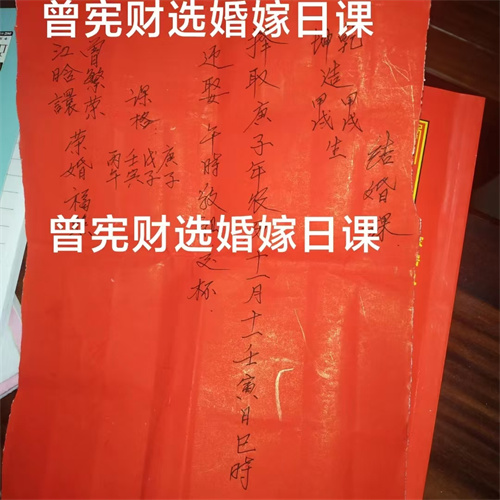 曾宪财选婚嫁日课
结婚课
乾造甲戌
坤造甲戌
生
择取庚子年农十一月十一壬寅日巳時
迎娶 午時敬交杯
课格
庚子
戊子
壬寅
丙午
曾繁荣
江晗讓
荣婚福
曾宪财选婚嫁日课